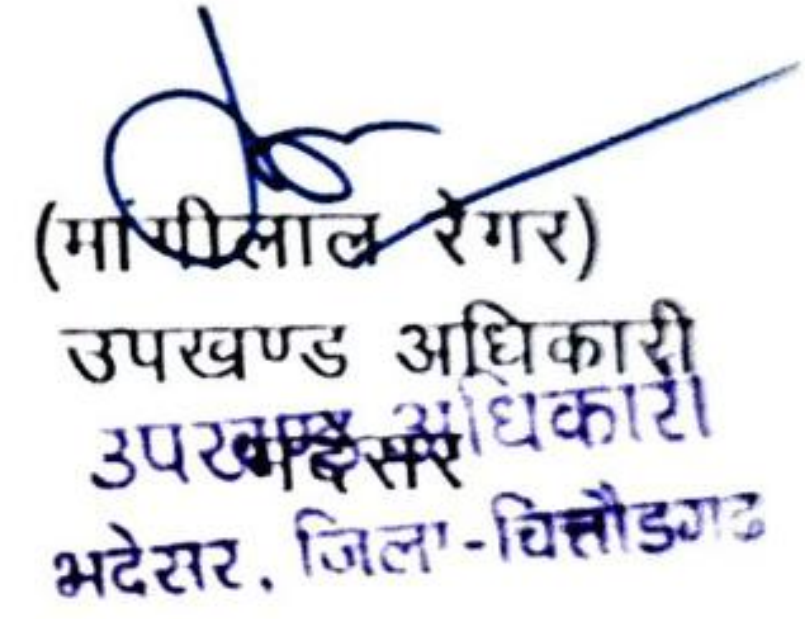 (मांगीलाल रेगर)
उपखण्ड अधिकारी
उपखण्ड अधिकारी
भदेसर
भदेसर, जिला-चित्तौडगढ